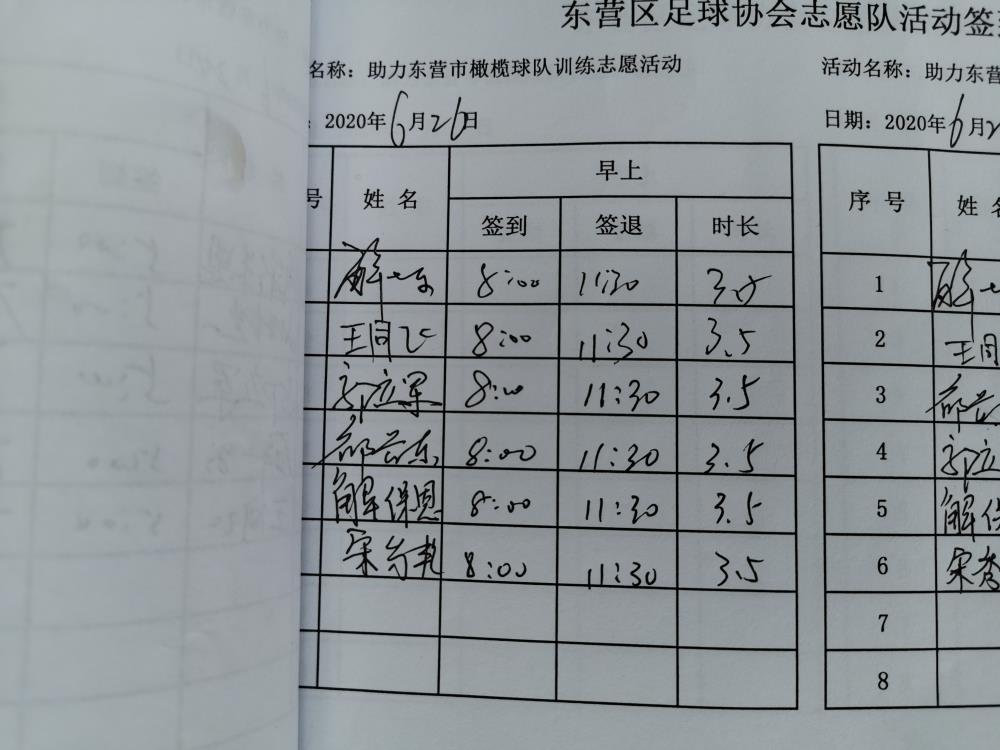 东营区足球协会志愿队活动签
名称：助力东营市橄榄球队训练志愿活动
活动名称：助力东营
2020年6月26日
日期：2020年6月2
号 姓 名 早上
签到 签退 时长
8:00 11:30 3.5
王同飞 8:00 11:30 3.5
郭立军 8:00 11:30 3.5
8:00 11:30 3.5
解保恩 8:00 11:30 3.5
8:00 11:30 3.5
序 号 姓 名
1
2 王同
3
4 郭立
5 解保
6 宋秀
7
8